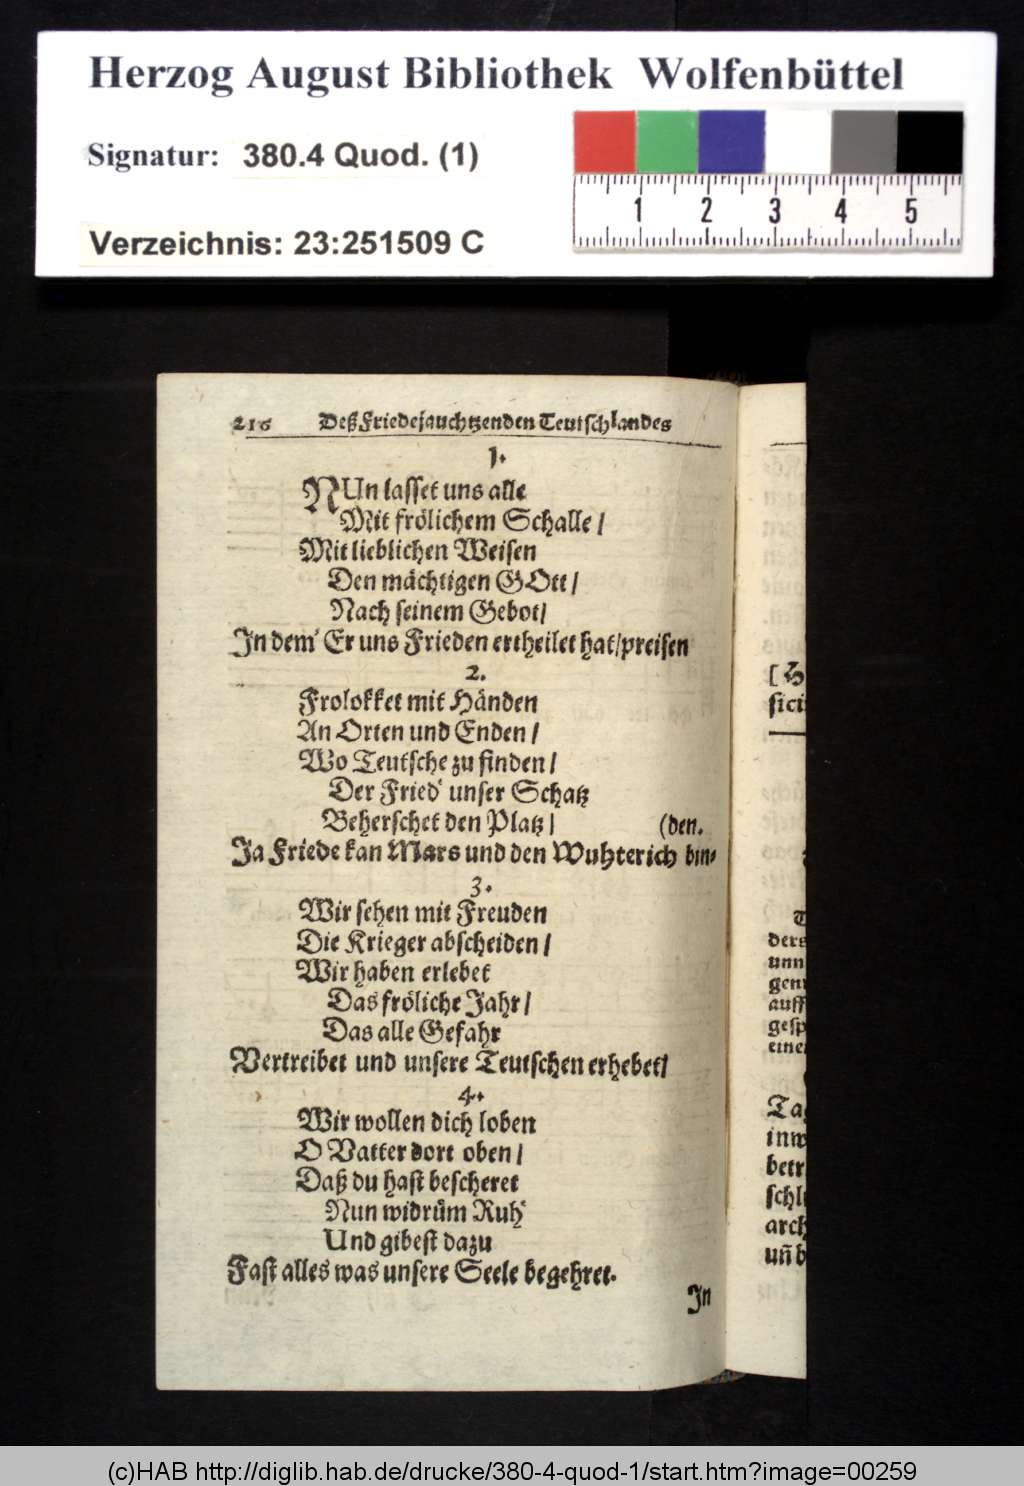 Herzog August Bibliothek Wolfenbüttel
Signatur: 380.4 Quod. (1)
Verzeichnis: 23:251509 C
1 2 3 4 5
216 Deß Friedejauchtzenden Teutschlandes
1.
NUn lasset uns alle
Mit frölichem Schalle /
Mit lieblichen Weisen
Den mächtigen GOtt /
Nach seinem Gebot /
In dem' Er uns Frieden ertheilet hat / preisen
2.
Frolokket mit Händen
An Orten und Enden /
Wo Teutsche zu finden /
Der Fried' unser Schatz
Beherschet den Platz / (den.
Ja Friede kan Mars und den Wuhterich bin-
3.
Wir sehen mit Freuden
Die Krieger abscheiden /
Wir haben erlebet
Das fröliche Jahr /
Das alle Gefahr
Vertreibet und unsere Teutschen erhebet /
4.
Wir wollen dich loben
O Vatter dort oben /
Daß du hast bescheret
Nun widrüm Ruh'
Und gibest dazu
Fast alles was unsere Seele begehret.
In
[H
sici
ders
unn
gen
auff
gesp
einer
Tag
inw
betr
schl
arch
uñ b
(c)HAB http://diglib.hab.de/drucke/380-4-quod-1/start.htm?image=00259